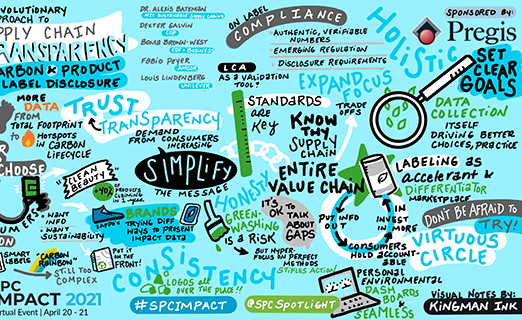 VOLUTIONARY
APPROACH TO
PPLY CHAIN
TRANSPARENCY
CARBON & PRODUCT
LABEL DISCLOSURE
DR. ALEXIS BATEMAN
MIT SUSTAINABLE SUPPLY CHAINS
DEXTER GALVIN
CDP
BOMA BROWN-WEST
EDF + BUSINESS
FABIO PEYER
AMCOR
LOUIS LINDENBERG
UNILEVER
ON LABEL
COMPLIANCE
- AUTHENTIC, VERIFIABLE
NUMBERS
- EMERGING REGULATION
- DISCLOSURE REQUIREMENTS
HOLISTIC
SPONSORED BY:
Pregis
SET
CLEAR
GOALS
MORE
DATA
FROM
TOTAL FOOTPRINT
TO HOTSPOTS
IN CARBON
LIFECYCLE
TRUST
TRANSPARENCY
DEMAND
FROM CONSUMERS
INCREASING
LCA
AS A VALIDATION
TOOL?
STANDARDS
ARE
KEY
EXPAND
FOCUS
TRADE
OFFS
KNOW
THY
SUPPLY
CHAIN
ENTIRE
VALUE CHAIN
DATA
COLLECTION
ITSELF
DRIVING BETTER
CHOICES, PRACTICE
CHOOSE
CLEAN
BEAUTY
SIMPLIFY
THE MESSAGE
HONESTY
GREEN-
WASHING
IS A RISK
IT'S
OK TO
TALK
ABOUT
GAPS
- BUT HYPER-
FOCUS ON PERFECT
METHODS
STIFLES ACTION
LABELING AS
ACCELERANT &
DIFFERENTIATOR
MARKETPLACE
DON'T BE AFRAID TO
TRY!
VIRTUOUS
CIRCLE
PUT INFO
OUT
INVEST IN
MORE
CONSUMERS
HOLD ACCOUNT-
ABLE
UMERS
WANT
INFO
WANT
SUSTAINABILITY
BRANDS
TRYING DIFF
WAYS TO PRESENT
IMPACT DATA
SMART
LABELS
"CARBON
RAINBOW"
STILL TOO
COMPLEX
PUT IT
ON THE
FRONT!
CONSISTENCY
LOGOS ALL
OVER THE PLACE!!
PERSONAL
ENVIRONMENTAL
DASH
BOARDS
&
SEAMLESS
SPC
IMPACT 2021
Virtual Event | April 20 - 21
#SPCIMPACT
@SPCSPOTLIGHT
VISUAL NOTES BY:
KINGMAN INK